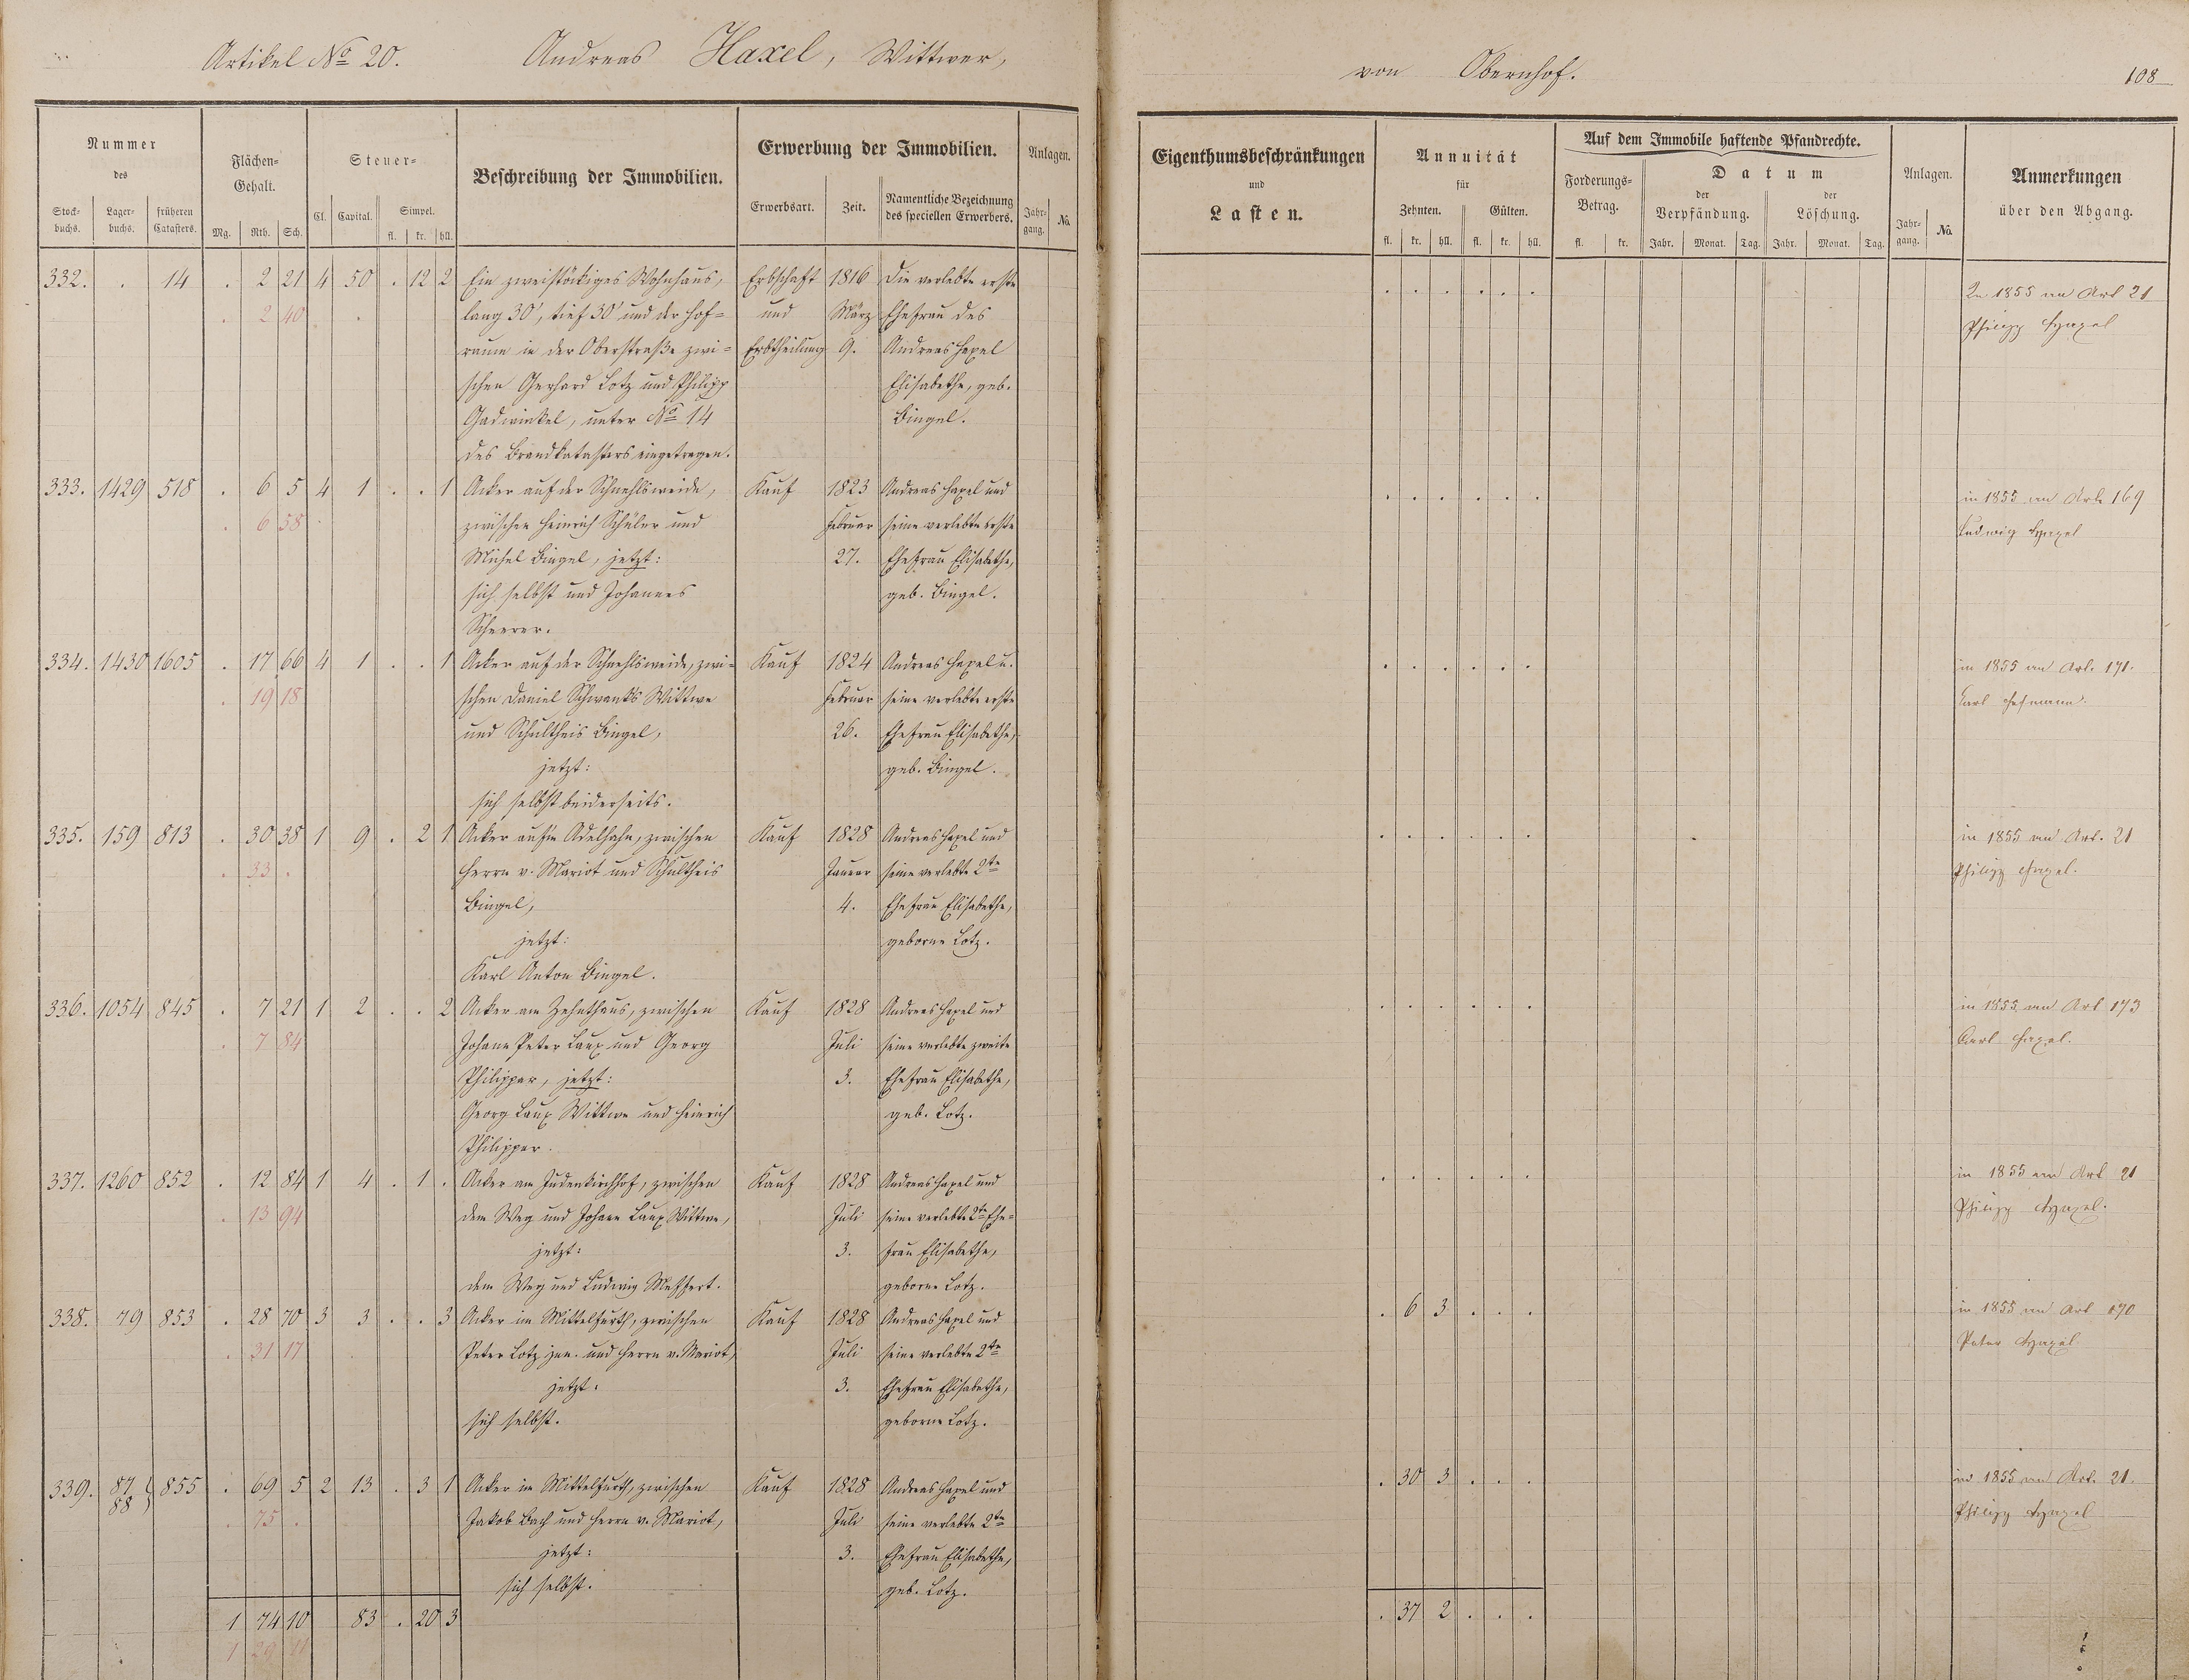 Artikel No 20. Andreas Haxel, Wittwer,
von Obernhof.
108
Nummer
des
Stock-
buchs.
Lager-
buchs.
früheren
Catasters.
Flächen-
Gehalt.
Mg. Rth. Sch.
Steuer-
Cl. Capital. Simpel.
fl. kr. hll.
Beschreibung der Immobilien.
Erwerbung der Immobilien.
Erwerbsart. Zeit.
Namentliche Bezeichnung
des speciellen Erwerbers.
Anlagen.
Jahr-
gang.
No.
Eigenthumsbeschränkungen
und
Lasten.
Annuität
für
Zehnten. Gülten.
fl. kr. hll. fl. kr. hll.
Auf dem Immobile haftende Pfandrechte.
Forderungs-
Betrag.
fl. kr.
Datum
der
Verpfändung.
der
Löschung.
Jahr. Monat. Tag. Jahr. Monat. Tag.
Anlagen.
Jahr-
gang.
No.
Anmerkungen
über den Abgang.
332. . 14 . 2 21 4 50 . 12 2 Ein zweistöckiges Wohnhaus, Erbschaft 1816 Die verlebte erste
. 2 40 lang 30', tief 30' und der Hof= und März Ehefrau des
raum in der Oberstraße zwi= Erbtheilung 9. Andreas Haxel
schen Gerhard Lotz und Philipp Elisabethe, geb.
Gadwinkel, unter No 14 Bingel.
des Brandkatasters eingetragen.
. . . . . . 1855 an Art 21
Philipp Haxel
333. 1429 518 . 6 5 4 1 . . 1 Acker auf der Schnehlsweide, Kauf 1823 Andreas Haxel und
. 6 58 zwischen Heinrich Schüler und Februar seine verlebte erste
Michel Bingel, jetzt: 27. Ehefrau Elisabethe,
sich selbst und Johannes geb. Bingel.
Scheerer.
. . . . . . in 1855 an Art. 169
Ludwig Haxel
334. 1430 1605 . 17 66 4 1 . . 1 Acker auf der Schnehlsweide, zwi= Kauf 1824 Andreas Haxel u.
. 19 18 schen Daniel Schwenks Wittwe Februar seine verlebte erste
und Schultheis Bingel, 26. Ehefrau Elisabethe,
jetzt: geb. Bingel.
sich selbst beiderseits.
. . . . . . in 1855 an Art. 171.
Karl Hofmann.
335. 159 813 . 30 38 1 9 . 2 1 Acker auf'm Adelhahn, zwischen Kauf 1828 Andreas Haxel und
. 33 . Herrn v. Mariot und Schultheis Januar seine verlebte 2te
Bingel, 4. Ehefrau Elisabethe,
jetzt: geborne Lotz.
Karl Anton Bingel.
. . . . . . in 1855 an Art. 21
Philipp Haxel.
336. 1054 845 . 7 21 1 2 . . 2 Acker am Zehnthaus, zwischen Kauf 1828 Andreas Haxel und
. 7 84 Johann Peter Laux und Georg Juli seine verlebte zweite
Philippar, jetzt: 3. Ehefrau Elisabethe,
Georg Laux Wittwe und Heinrich geb. Lotz.
Philippar.
. . . . . . in 1855 an Art 173
Carl Haxel.
337. 1260 852 . 12 84 1 4 . 1 . Acker am Judenkirchhof, zwischen Kauf 1828 Andreas Haxel und
. 13 94 dem Weg und Johann Laux Wittwe, Juli seine verlebte 2te Ehe=
jetzt: 3. frau Elisabethe,
dem Weg und Ludwig Meffert. geborne Lotz.
. . . . . . in 1855 an Art 21
Philipp Haxel.
338. 79 853 . 28 70 3 3 . . 3 Acker im Mittelfurth, zwischen Kauf 1828 Andreas Haxel und
. 31 17 Peter Lotz jun. und Herrn v. Mariot, Juli seine verlebte 2te
jetzt: 3. Ehefrau Elisabethe,
sich selbst. geborne Lotz.
. 6 3 . . . in 1855 an Art 170
Peter Haxel
339. 87 88 855 . 69 5 2 13 . 3 1 Acker im Mittelfurth, zwischen Kauf 1828 Andreas Haxel und
. 75 . Jakob Bach und Herrn v. Mariot, Juli seine verlebte 2te
jetzt: 3. Ehefrau Elisabethe,
sich selbst. geb. Lotz.
. 30 3 . . . in 1855 an Art. 21.
Philipp Haxel
1 74 10 83 . 20 3
. 37 2 . . .